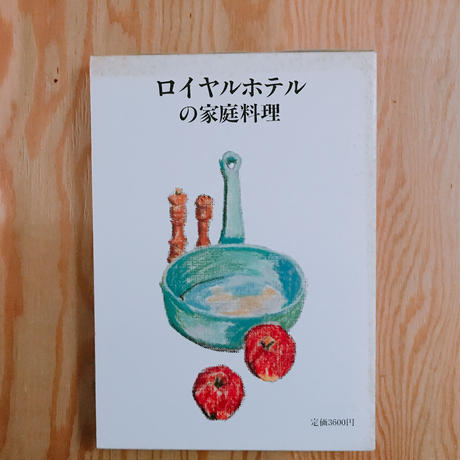 ロイヤルホテル
の家庭料理
定価3600円